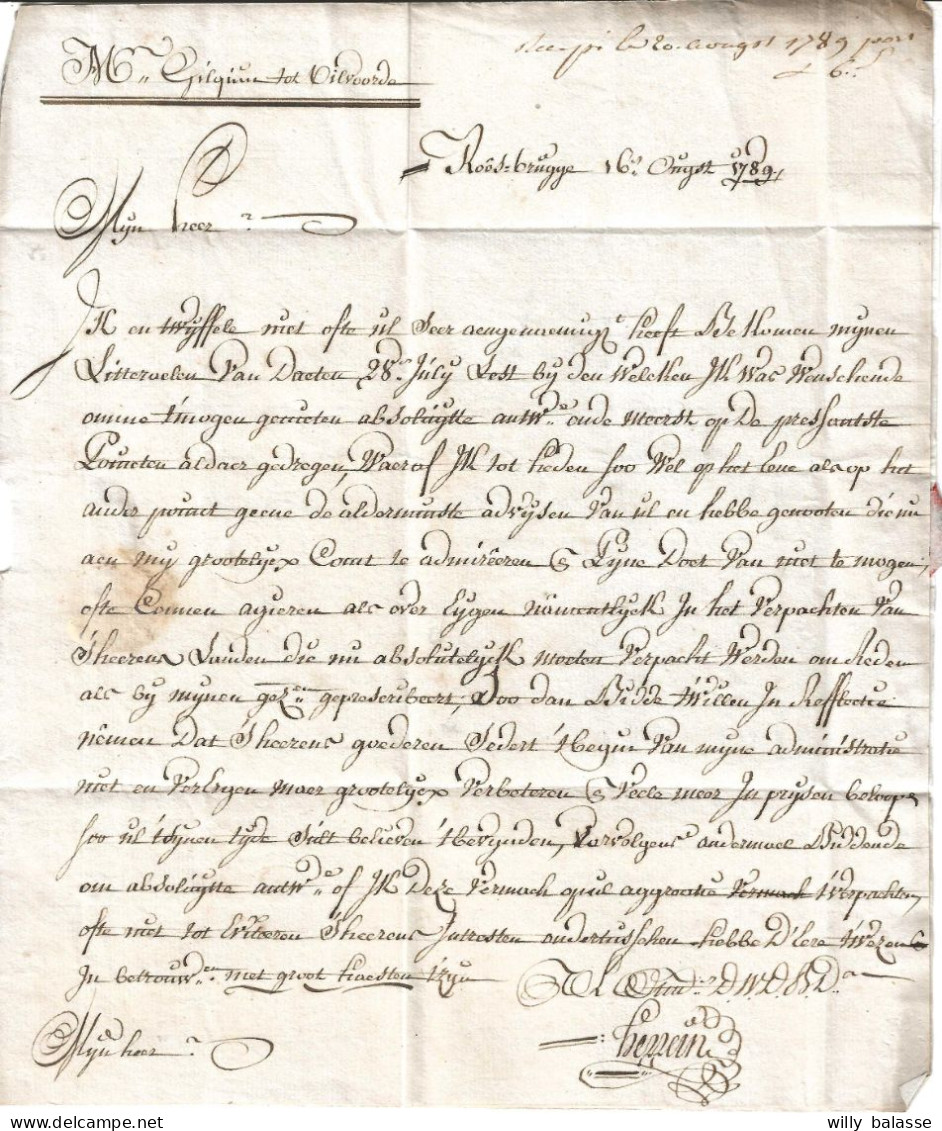 Recepi le 20 ougst 1789 port
6 s
Mr. Gilquin tot Vilvoorde
Roesbrugge 16en Ougst 1789,
Mijn heer
Ik en twijffele niet ofte ul seer aengenaemigst heeft Bekomen mijnen
Litteroelen Van Daeten 28en July Lest bij den Welcken Ik Was Wenschende
omme t'mogen genieten absoluijtte antwde ende meerst op De pressantste
Poincten aldaer gedregen, Waeraf Ik tot heden soo Wel op het eene als op het
ander point geene de alderminste advijsen Van ul en hebbe genooten die nu
aen mij grootelijcx Comt te admireeren & Pijne Doet Van niet te mogen,
ofte Connen agieren als over Eijgen naementlijck In het Verpachten Van
S'heerens Landen die nu absolutelijck moeten Verpacht Werden om Reden
als bij mijnen geprescribeert, Soo dan Bidde t'Willen In Refflectie
nemen Dat S'heerens goederen Sedert t'Begin Van mijne administratie
niet en VerErgen maer grootelijcx Verbeteren & Veele meer In prijsen beloopen
soo ul t'sijnen tijde Sult believen t'Bevijnden, Vervolgens andermael Biddende
om absoluijtte antwde of Ik Deze Vermach qual aggreatie Vermach t'Verpachten,
ofte niet tot Eviteeren S'heerens Intresten ondertusschen hebbe D'Eere t'Wezen
In betrouwen met groot haesten t'zijn
Mijn heer
Ul Ootm. D.W.D.
herrein
willy balasse